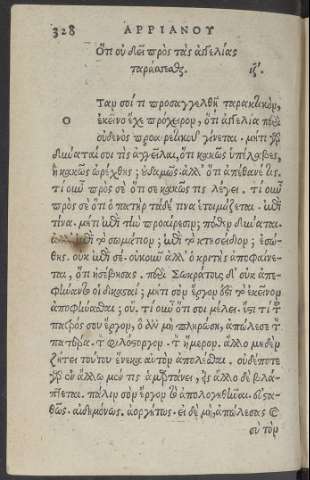 328 ΑΡΡΙΑΝΟΥ
Ὅτι οὐ δεῖ πρὸς τὰς ἀγγελίας
ταράσσεσθαι. ιζ'.
Ὅταν σοί τι προσαγγελθῇ ταρακτικὸν,
ἐκεῖνο ἔχε πρόχειρον, ὅτι ἀγγελία περὶ
οὐδενὸς προαιρετικοῦ γίνεται. μήτι γὰρ
δύναταί σοι τὶς ἀγγεῖλαι, ὅτι κακῶς ὑπέλαβες,
ἢ κακῶς ὠρέχθης; οὐδαμῶς. ἀλλ' ὅτι ἀπέθανέ τις.
τί οὖν πρὸς σέ; ὅτι σε κακῶς τὶς λέγει. τί οὖν
πρὸς σέ; ὅτι ὁ πατὴρ τάδε τινα ἑτοιμάζεται. ἐπὶ
τίνα. μήτι ἐπὶ τὴν προαίρεσιν; πόθεν δύναται.
ἀλλ' ἐπὶ τὸ σωμάτιον; ἐπὶ τὸ κτησείδιον; ἐσώ-
θης. οὐκ ἐπὶ σέ. οὐκοῦν ἀλλ' ὁ κριτὴς ἀποφαίνε-
ται, ὅτι ἠσέβησας. περὶ Σωκράτους δ' οὐκ ἀπε-
φήναντο οἱ δικασταί; μήτι σὸν ἔργον ἐστὶ τὸ ἐκεῖνον
ἀποφήνασθαι; οὔ. τί οὖν ὅτι σοι μέλει. ἔστι τὶ τοῦ
πατρός σου ἔργον, ὃ ἂν μὴ πληρώσῃ, ἀπώλεσε τὸν
πατέρα. τὸν φιλόστοργον. τὸν ἥμερον. ἄλλο μηδὲν
ζήτει τούτου ἕνεκα αὐτὸν ἀπολέσθαι. οὐδέποτε
γὰρ ἐν ἄλλῳ μέν τις ἁμαρτάνει, εἰς ἄλλο δὲ βλά-
πτεται. πάλιν σὸν ἔργον τὸ ἀπολογηθῆναι. εὐστα-
θῶς. αἰδημόνως. ἀοργήτως. εἰ δὲ μὴ, ἀπώλεσας καὶ
σὺ τὸν